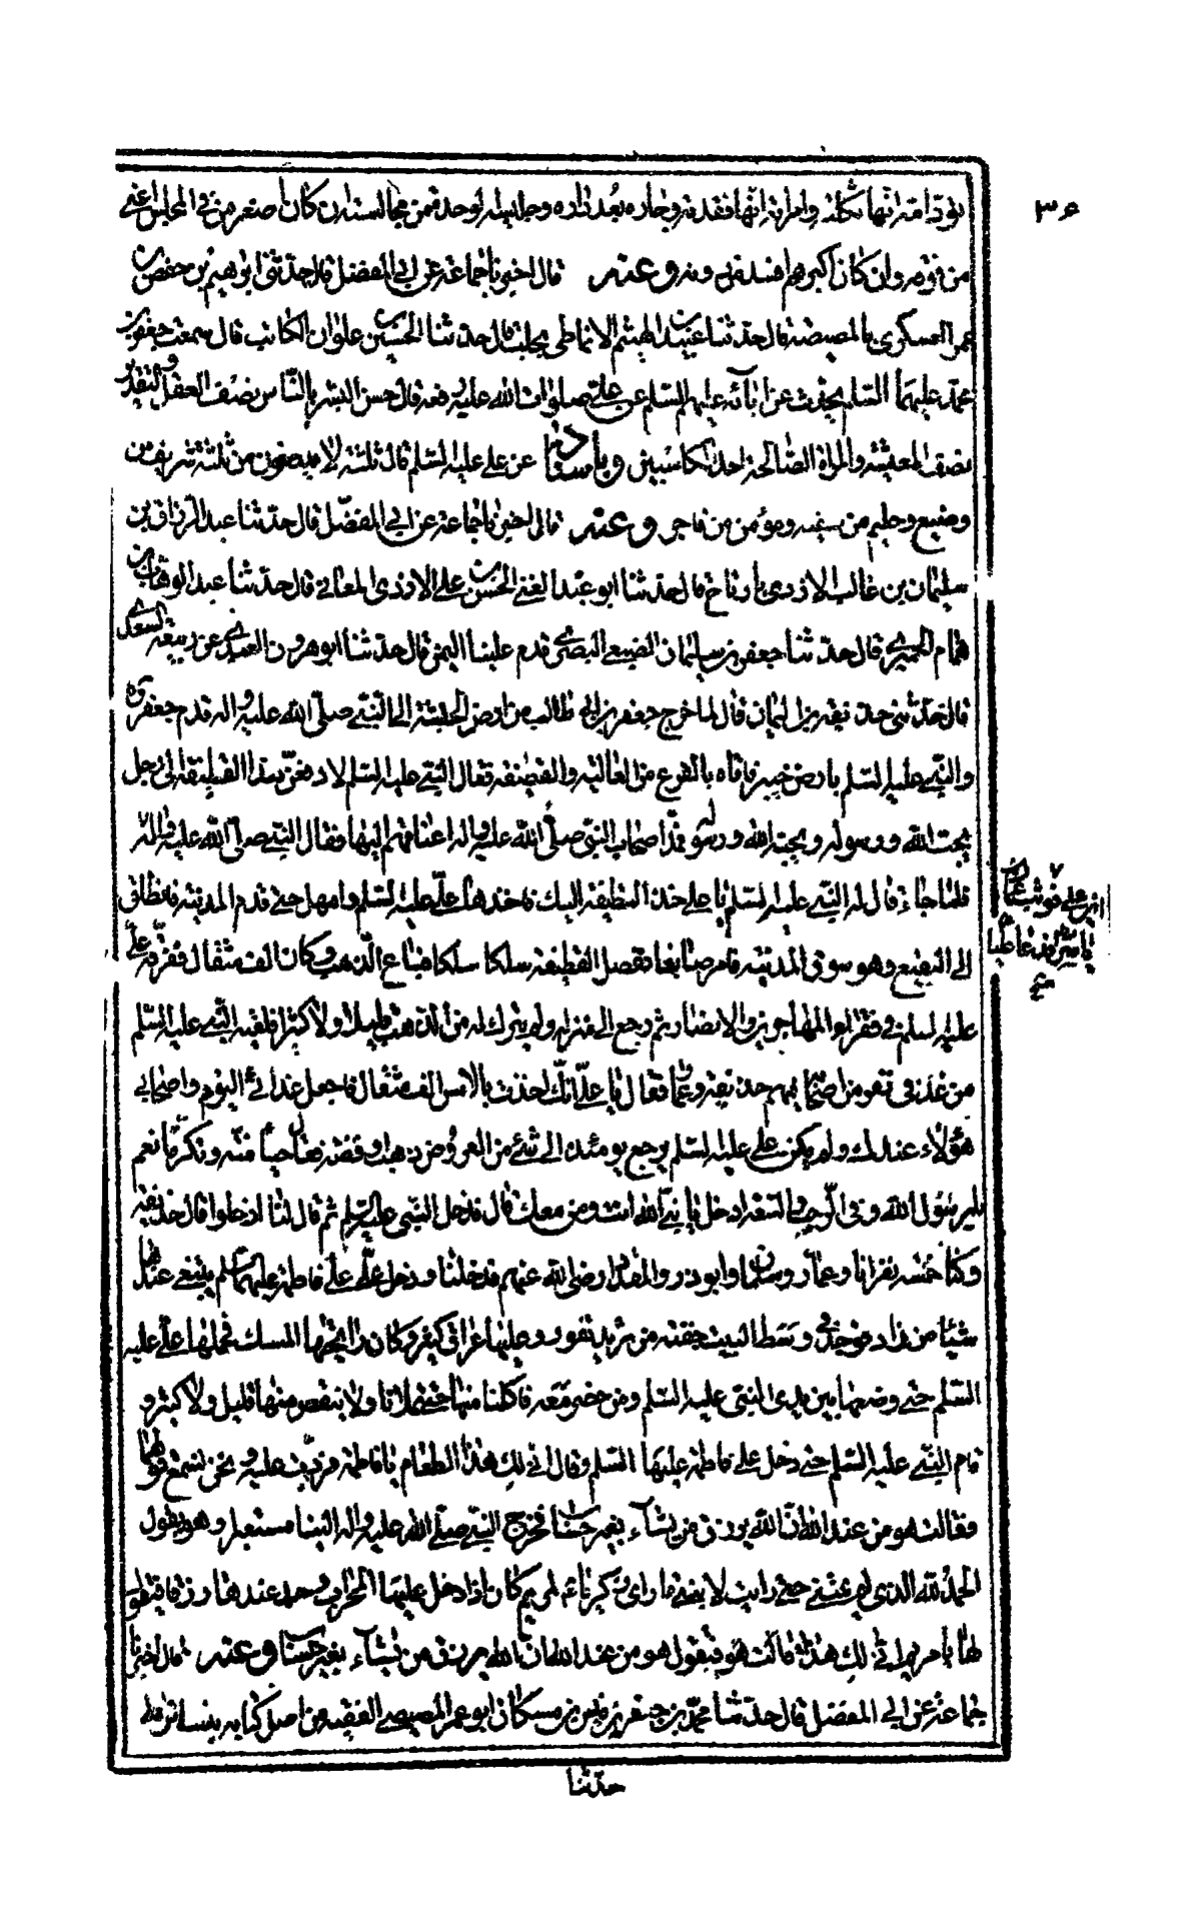 من فوقه وان كان اكبرهم فيه دونه وعنه قال اخبرنا جماعة عن ابى المفضل قال حدثنى ابرهيم بن حفص بن
عمر العسكرى بالمصيصة قال حدثنا عبيد بن الهيثم الانماطى بحلب قال حدثنا الحسين بن علوان الكاتب قال سمعت جعفر بن
محمد عليهما السلم يحدث عن ابآئه عليهم السلم عن على صلوات الله عليه رفعه قال حسن البشر بالناس نصف العقل والتقدير
نصف المعيشة والمراة الصالحة احد الكاسبين وباسناده عن على عليه السلم قال ثلثة لا ينتصفون من ثلثة شريف من
وضيع وحليم من سفيه ومؤمن من فاجر وعنه قال اخبرنا جماعة عن ابى المفضل قال حدثنا عبد الرزاق بن
سليمان بن غالب الازدى بارتاح قال حدثنا ابو عبد الغنى الحسن بن على الازدى المعانى قال حدثنا عبد الوهاب بن
همام الحميرى قال حدثنا جعفر بن سليمان الضبعى البصرى قدم علينا اليمن قال حدثنا ابو هرون العبدى عن ربيعة السعدى
قال حدثنى حذيفة بن اليمان قال لما خرج جعفر بن ابى طالب من ارض الحبشة الى النبى صلى الله عليه واله قدم جعفر ره
والنبى عليه السلم بارض خيبر فاتاه بالفرع من الغالية والقطيفة فقال النبى عليه السلم لادفعن هذه القطيفة الى رجل
يحب الله ورسوله ويحبه الله ورسوله فمد اصحاب النبى صلى الله عليه واله اعناقهم اليها فقال النبى صلى الله عليه واله
فلما جاء قال له النبى عليه السلم يا على خذ هذه القطيفة اليك فاخذها على عليه السلم وامهل حتى قدم المدينة فانطلق
الى البقيع وهو سوق المدينة فامر صايغا ففصل القطيفة سلكا سلكا فباع الذهب وكان الف مثقال ففرقه على
عليه السلم فى فقراء المهاجرين والانصار ثم رجع الى منزله ولم يترك له من الذهب قليلا ولا كثيرا فلقيه النبى عليه السلم
من غد فى نفر من اصحابه فيهم حذيفة وعمار فقال يا على انك اخذت بالامس الف مثقال فاجعل غدائى اليوم واصحابى
هؤلاء عندك ولم يكن على عليه السلم يرجع يومئذ الى شئ من العروض ذهب وفضة فقال حياء منه وتكرما نعم
يا رسول الله وفى الرحب والسعة ادخل يا نبى الله انت ومن معك قال فدخل النبى عليه السلم ثم قال لنا ادخلوا قال حذيفة
وكنا خمسة نفر انا وعمار وسلمان وابو ذر والمقداد رضى الله عنهم فدخلنا ودخل على على فاطمة عليهما السلم يبتغى عندها
شيئا من زاد فوجد فى وسط البيت جفنة من ثريد تفور وعليها عراق كثير وكان رايحتها المسك فحملها على عليه
السلم حتى وضعها بين يدى النبى عليه السلم ومن حضر معه فاكلنا منها حتى تملانا ولا ينقص منها قليل ولا كثير و
قام النبى عليه السلم حتى دخل على فاطمة عليها السلم وقال انى لك هذا الطعام يا فاطمة فردت عليه ونحن نسمع قولهما
فقالت هو من عند الله ان الله يرزق من يشآء بغير حساب فخرج النبى صلى الله عليه واله الينا مستعبرا وهو يقول
الحمد لله الذى لم يمتنى حتى رايت لابنتى ما راى زكريا لمريم كان اذا دخل عليها المحراب وجد عندها رزقا فيقول
لها يا مريم انى لك هذا فتقول هو من عند الله ان الله يرزق من يشآء بغير حساب وعنه قال اخبرنا
جماعة عن ابى المفضل قال حدثنا محمد بن جعفر بن مسكان ابو عمر المصيصى الفقيه من اصل كتابه
حدثنا